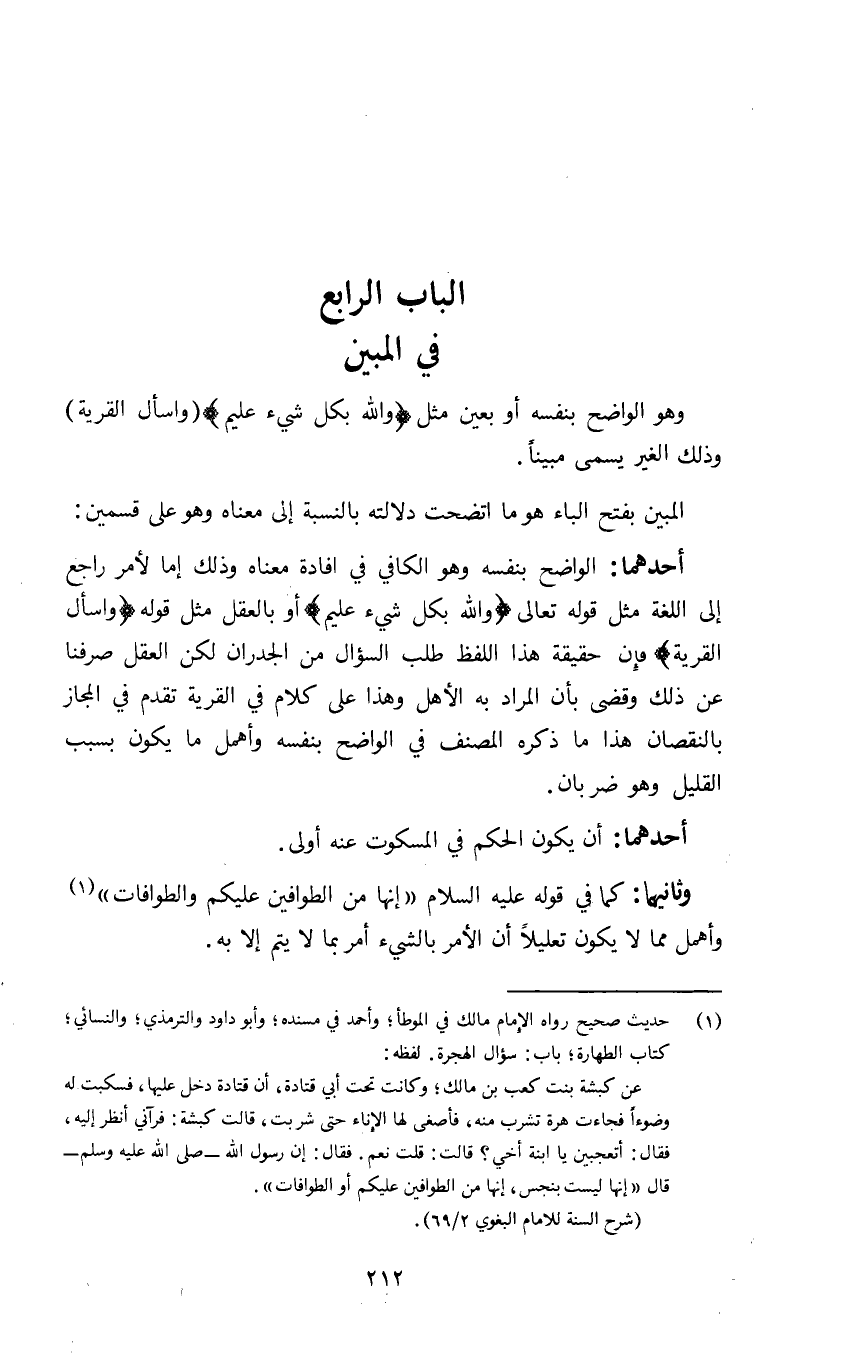 الباب الرابع
في المبين
وهو الواضح بنفسه أو بعين مثل ﴿والله بكل شيء عليم﴾(واسأل القرية)
وذلك الغير يسمى مبيناً.
المبين بفتح الباء هو ما اتضحت دلالته بالنسبة إلى معناه وهو على قسمين:
أحدهما: الواضح بنفسه وهو الكافي في افادة معناه وذلك إما لأمر راجع
إلى اللغة مثل قوله تعالى ﴿والله بكل شيء عليم﴾ أو بالعقل مثل قوله ﴿واسأل
القرية﴾ فإن حقيقة هذا اللفظ طلب السؤال من الجدران لكن العقل صرفنا
عن ذلك وقضى بأن المراد به الأهل وهذا على كلام في القرية تقدم في المجاز
بالنقصان هذا ما ذكره المصنف في الواضح بنفسه وأهمل ما يكون بسبب
القليل وهو ضربان.
أحدهما: أن يكون الحكم في المسكوت عنه أولى.
وثانيها: كما في قوله عليه السلام «إنها من الطوافين عليكم والطوافات»(١)
وأهمل مما لا يكون تعليلاً أن الأمر بالشيء أمر بما لا يتم إلا به.
(١) حديث صحيح رواه الإمام مالك في الموطأ؛ وأحمد في مسنده؛ وأبو داود والترمذي؛ والنسائي؛
كتاب الطهارة؛ باب: سؤال الهجرة. لفظه:
عن كبشة بنت كعب بن مالك؛ وكانت تحت أبي قتادة، أن قتادة دخل عليها، فسكبت له
وضوءاً فجاءت هرة تشرب منه، فأصغى لها الإناء حتى شربت، قالت كبشة: فرآني أنظر إليه،
فقال: أتعجبين يا ابنة أخي؟ قالت: قلت نعم. فقال: إن رسول الله —صلى الله عليه وسلم—
قال «إنها ليست بنجس، إنها من الطوافين عليكم أو الطوافات».
(شرح السنة للامام البغوي ٦٩/٢).
٢١٢